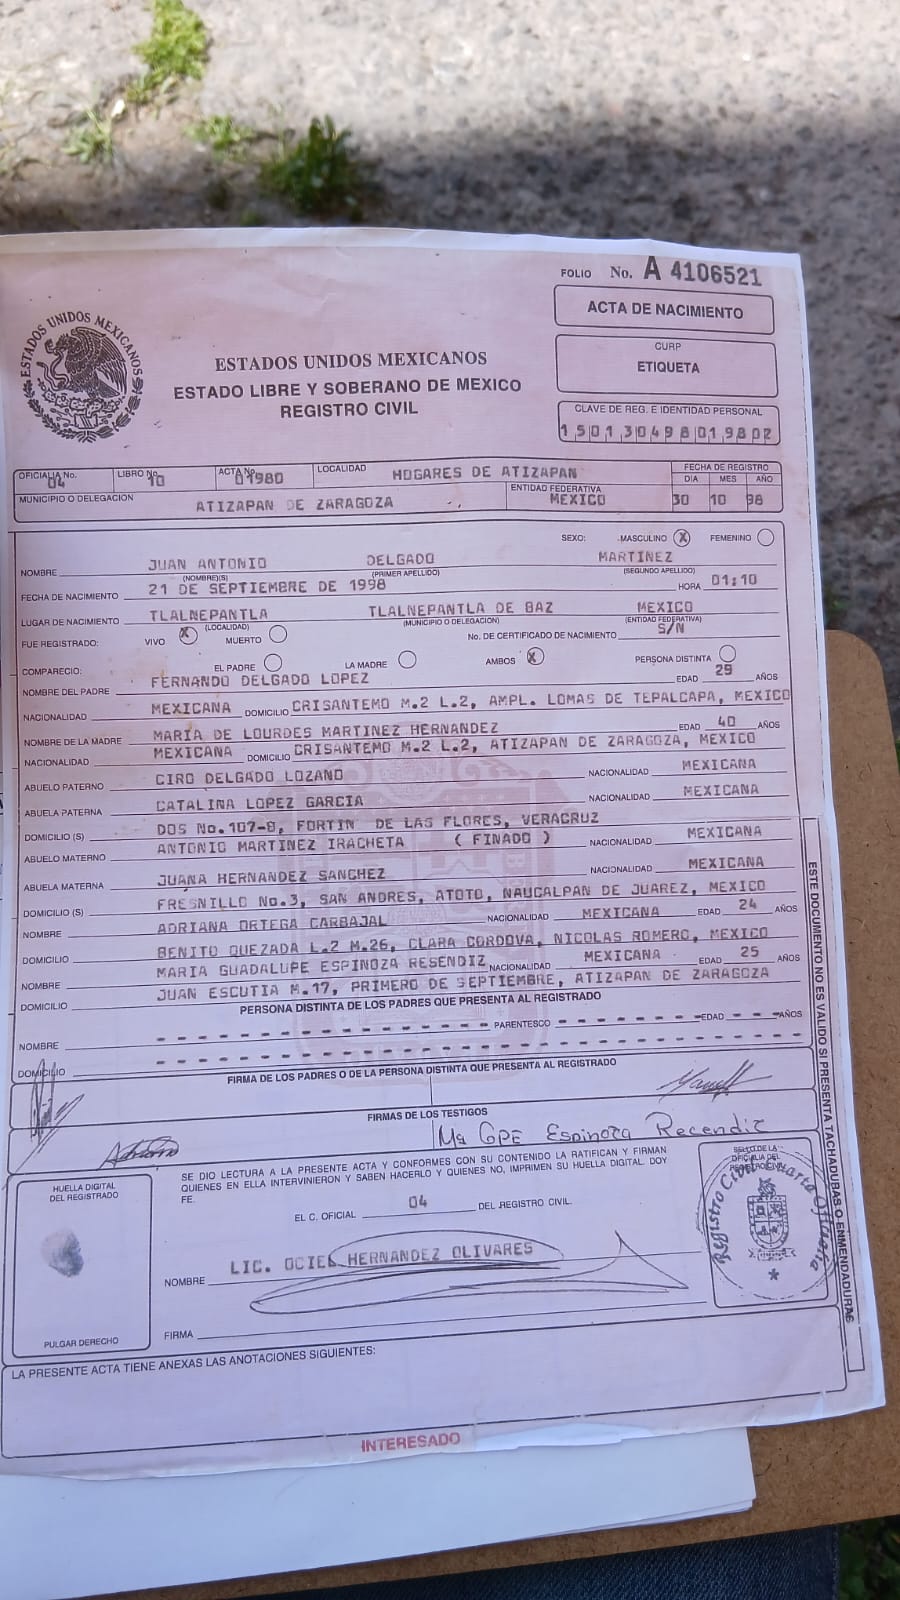 FOLIO No. A 4106521
ACTA DE NACIMIENTO
CURP
ETIQUETA
CLAVE DE REG. E IDENTIDAD PERSONAL
150130498019802
ESTADOS UNIDOS MEXICANOS
ESTADOS UNIDOS MEXICANOS
ESTADO LIBRE Y SOBERANO DE MEXICO
REGISTRO CIVIL
OFICIALIA No. 04 LIBRO No. 10 ACTA No. 01980 LOCALIDAD HOGARES DE ATIZAPAN FECHA DE REGISTRO
MUNICIPIO O DELEGACION ATIZAPAN DE ZARAGOZA ENTIDAD FEDERATIVA MEXICO DIA 30 MES 10 AÑO 98
SEXO: MASCULINO X FEMENINO
NOMBRE JUAN ANTONIO DELGADO MARTINEZ
(NOMBRE(S) (PRIMER APELLIDO) (SEGUNDO APELLIDO)
FECHA DE NACIMIENTO 21 DE SEPTIEMBRE DE 1998 HORA 01:10
LUGAR DE NACIMIENTO TLALNEPANTLA TLALNEPANTLA DE BAZ MEXICO
(LOCALIDAD) (MUNICIPIO O DELEGACION) (ENTIDAD FEDERATIVA)
FUE REGISTRADO: VIVO X MUERTO No. DE CERTIFICADO DE NACIMIENTO S/N
COMPARECIO: EL PADRE LA MADRE AMBOS X PERSONA DISTINTA
NOMBRE DEL PADRE FERNANDO DELGADO LOPEZ EDAD 29 AÑOS
NACIONALIDAD MEXICANA DOMICILIO CRISANTEMO M.2 L.2, AMPL. LOMAS DE TEPALCAPA, MEXICO
NOMBRE DE LA MADRE MARIA DE LOURDES MARTINEZ HERNANDEZ EDAD 40 AÑOS
NACIONALIDAD MEXICANA DOMICILIO CRISANTEMO M.2 L.2, ATIZAPAN DE ZARAGOZA, MEXICO
ABUELO PATERNO CIRO DELGADO LOZANO NACIONALIDAD MEXICANA
ABUELA PATERNA CATALINA LOPEZ GARCIA NACIONALIDAD MEXICANA
DOMICILIO (S) DOS No.107-8, FORTIN DE LAS FLORES, VERACRUZ
ABUELO MATERNO ANTONIO MARTINEZ IRACHETA ( FINADO ) NACIONALIDAD MEXICANA
ABUELA MATERNA JUANA HERNANDEZ SANCHEZ NACIONALIDAD MEXICANA
DOMICILIO (S) FRESNILLO No.3, SAN ANDRES, ATOTO, NAUCALPAN DE JUAREZ, MEXICO
NOMBRE ADRIANA ORTEGA CARBAJAL NACIONALIDAD MEXICANA EDAD 24 AÑOS
DOMICILIO BENITO QUEZADA L.2 M.26, CLARA CORDOVA, NICOLAS ROMERO, MEXICO
NOMBRE MARIA GUADALUPE ESPINOZA RESENDIZ NACIONALIDAD MEXICANA EDAD 25 AÑOS
DOMICILIO JUAN ESCUTIA M.17, PRIMERO DE SEPTIEMBRE, ATIZAPAN DE ZARAGOZA
PERSONA DISTINTA DE LOS PADRES QUE PRESENTA AL REGISTRADO
NOMBRE PARENTESCO EDAD AÑOS
DOMICILIO
FIRMA DE LOS PADRES O DE LA PERSONA DISTINTA QUE PRESENTA AL REGISTRADO
FIRMAS DE LOS TESTIGOS
Ma GPE Espinoza Recendiz
SE DIO LECTURA A LA PRESENTE ACTA Y CONFORMES CON SU CONTENIDO LA RATIFICAN Y FIRMAN
QUIENES EN ELLA INTERVINIERON Y SABEN HACERLO Y QUIENES NO, IMPRIMEN SU HUELLA DIGITAL. DOY
FE.
HUELLA DIGITAL
DEL REGISTRADO
PULGAR DERECHO
EL C. OFICIAL 04 DEL REGISTRO CIVIL.
NOMBRE LIC. OCIEL HERNANDEZ OLIVARES
FIRMA
SELLO DE LA
OFICIALIA DEL
REGISTRO CIVIL
Registro Civil Cuarta Oficialia
ESTE DOCUMENTO NO ES VALIDO SI PRESENTA TACHADURAS O ENMENDADURAS
LA PRESENTE ACTA TIENE ANEXAS LAS ANOTACIONES SIGUIENTES:
INTERESADO